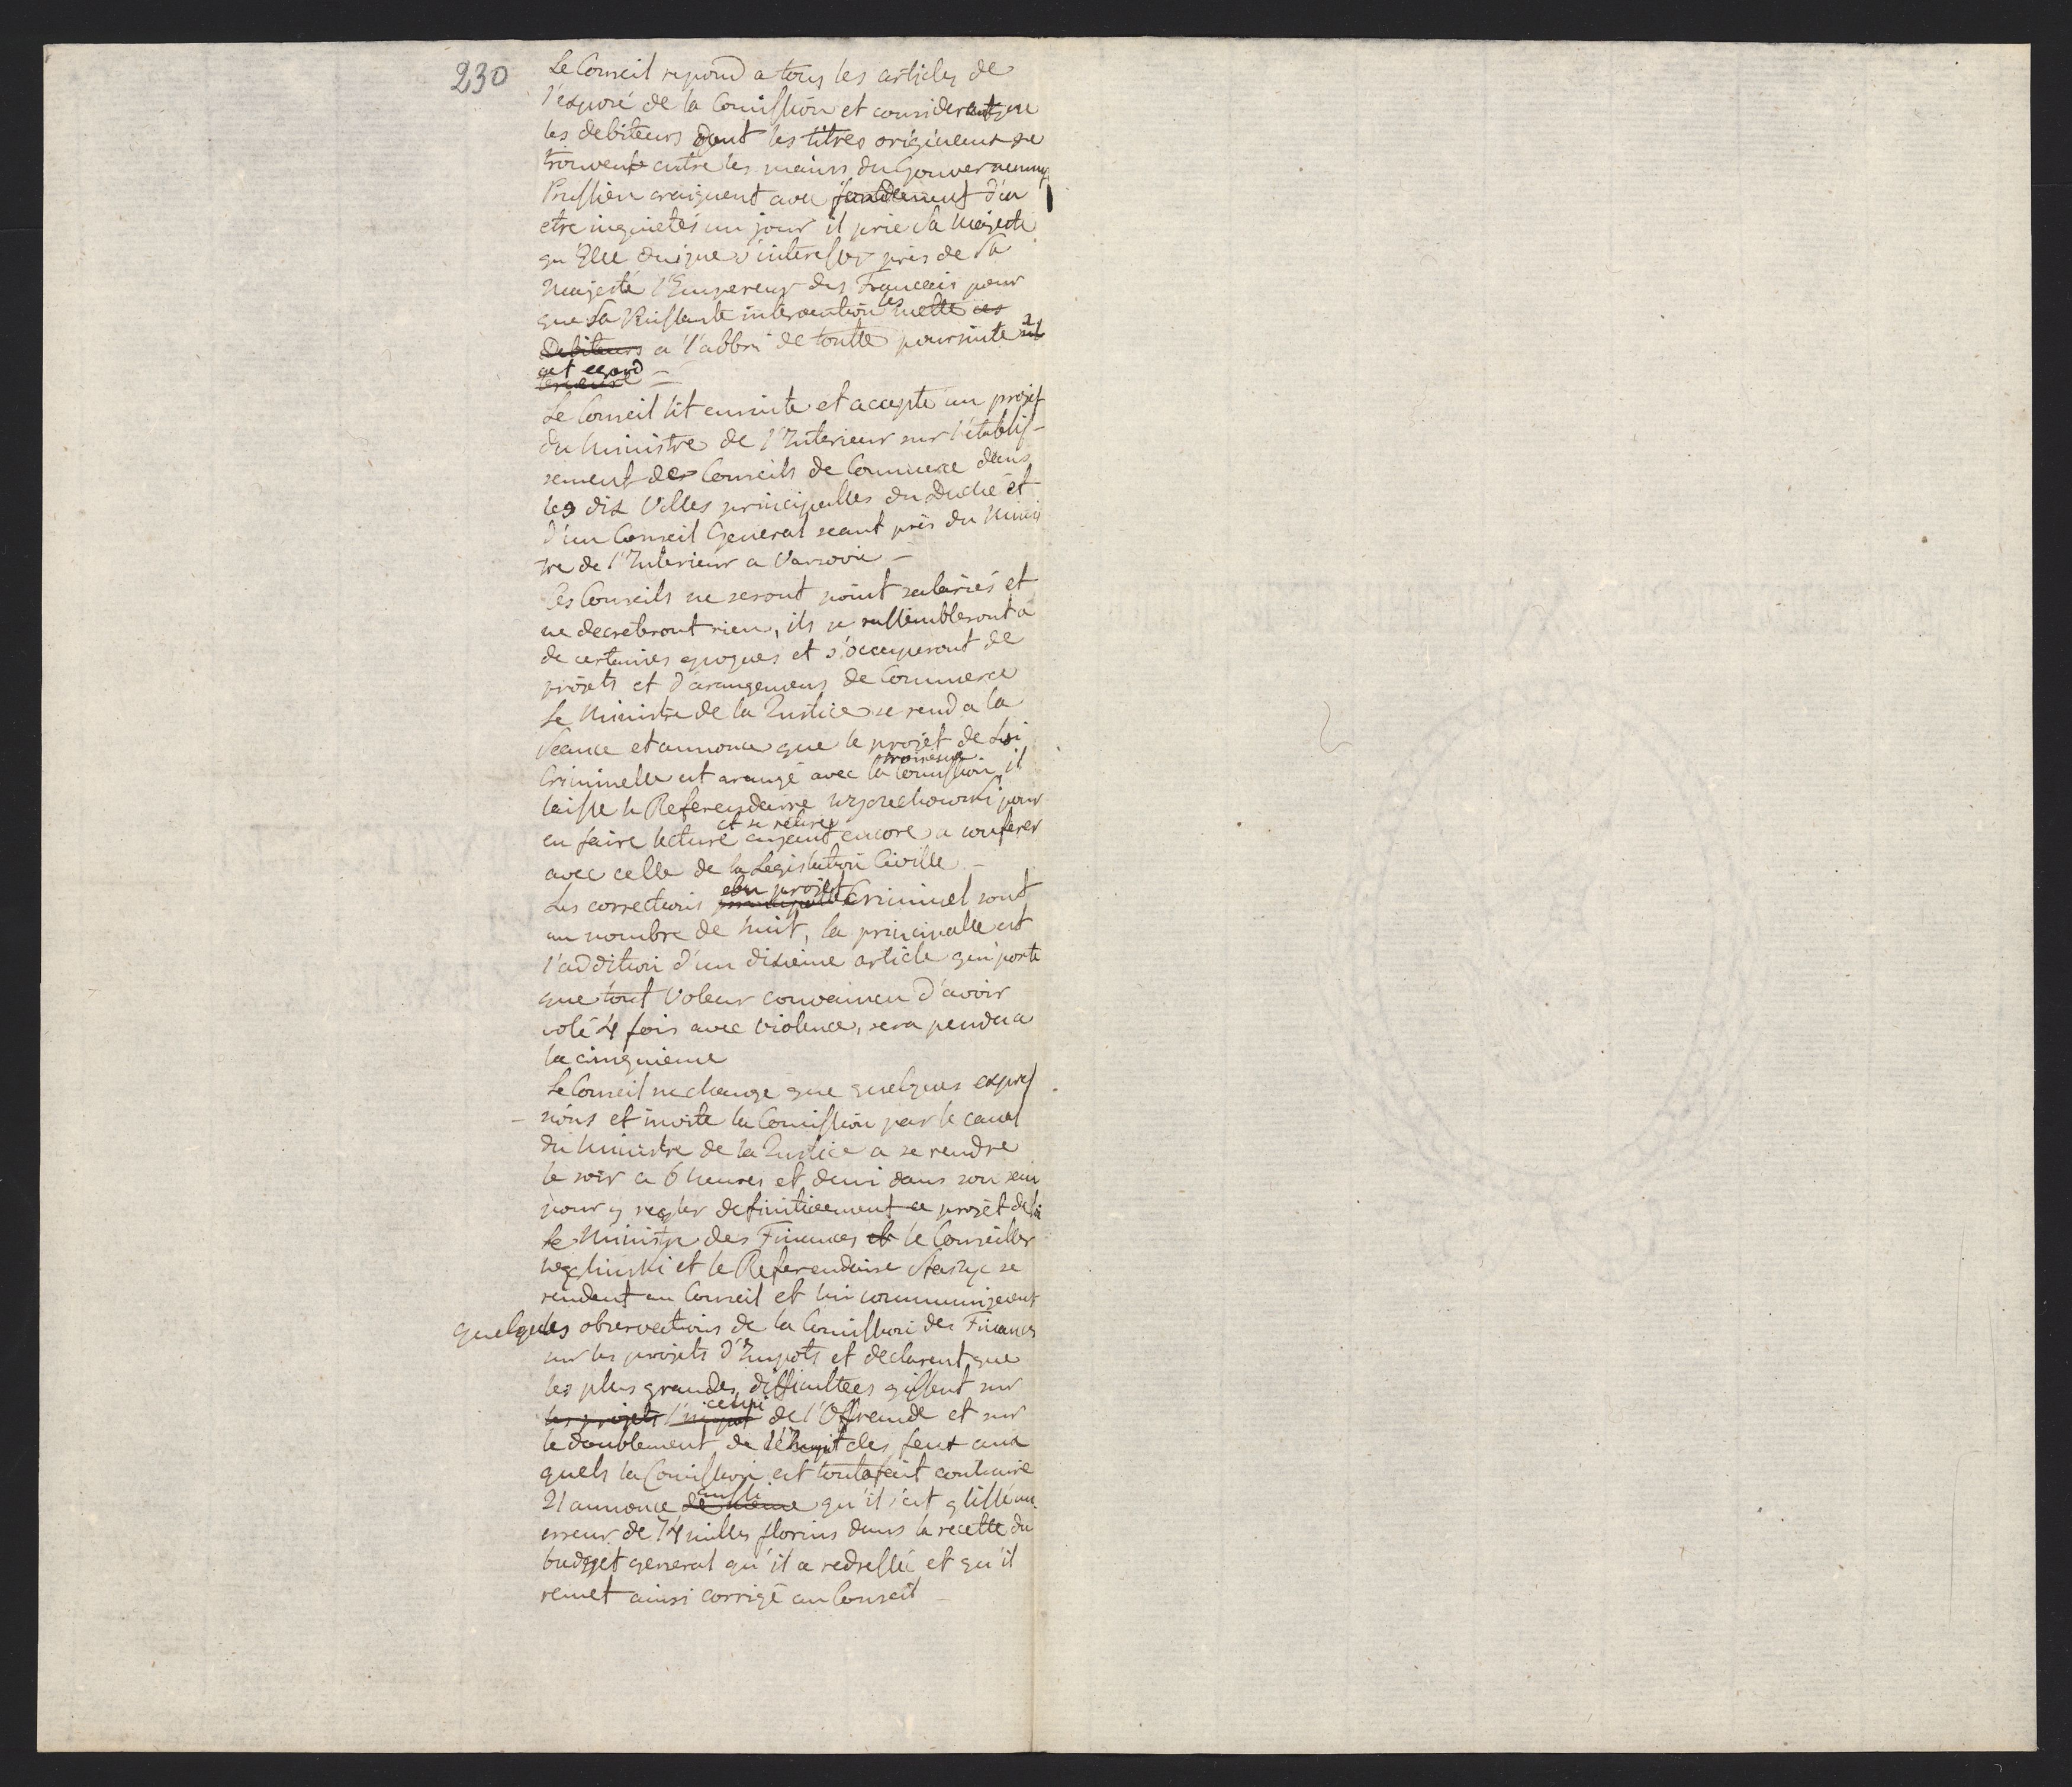 230
Le Conseil repond a tous les articles de
l'exposé de la Comission et considerant que
les debiteurs dont les titres origineaux se
trouvent entre les mains du Gouvernement
Prussien craignent avec fondement d'en
etre inquietés un jour il prie Sa Majesté
qu'Elle daigne s'interesser près de Sa
Majesté l'Empereur des Francais pour
que Sa Puissante intervention les mette ces
Debiteurs a l'abbri de toutte poursuite a
cet egard —
Le Conseil lit ensuite et accepte un projet
du Ministre de l'Interieur sur l'établis-
sement des Conseils de Commerce dans
les dix Villes principalles du Duché et
d'un Conseil General seant près du Minis
tre de l'Interieur a Varsovie —
Ces Conseils ne seront point salariés et
ne decreteront rien, ils se rassembleront a
de certaines epoques et s'occuperont de
projets et d'arangemens de Commerce
Le Ministre de la Justice se rend a la
Seance et annonce que le projet de Loi
Criminelle est arangé avec la Comission, il
laisse le Referendaire Wyczechowski pour
en faire lecture et se retire ayant encore a conferer
avec celle de la Legislation Civille —
Les corrections du projet Criminel sont
au nombre de huit, la principalle est
l'addition d'un dixieme article qui porte
que tout Voleur convaincu d'avoir
volé 4 fois avec violence, sera pendu a
la cinquieme
Le Conseil ne change que quelques expres
– sions et invite la Comission par le canal
du Ministre de la Justice a se rendre
le soir a 6 heures et demi dans son sein
pour y regler definitivement ce projet de loi
Le Ministre des Finances et le Conseiller
Węgliński et le Referendaire Staszyc se
rendent au Conseil et lui communiquent
quelques observations de la Comission des Finances
sur les projets d'Impots et declarent que
les plus grandes difficultees gissent sur
les projets l'impot celui de l'Offrande et sur
le doublement de l'Impot des feux aux
quels la Comission est toutafait contraire
Il annonce de meme aussi qu'il s'est glissé une
erreur de 74 milles florins dans la recette du
budget general qu'il a redressée et qu'il
remet ainsi corrigé au Conseil —